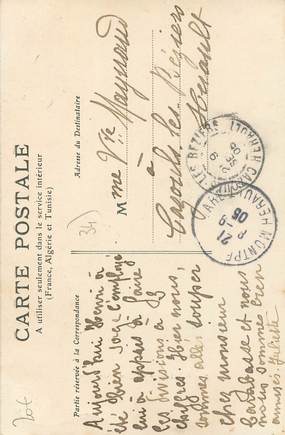 CARTE POSTALE
A utiliser seulement dans le service intérieur
(France, Algérie et Tunisie)
Partie réservée à la Correspondance
Adresse du Destinataire
Aujourd'hui Henri a
été bien sage l'employé
lui a appris à faire
les divisions à 23
chiffres. Hier nous,
sommes allés souper
chez monsieur
Barabasse et nous
nous sommes bien
amusés. Juliette
Mme Vve Maynaud
à
Cazouls-les-Béziers
Hérault
34
CAZOULS-LES-BEZIERS HERAULT
MONTPE HERAULT
21